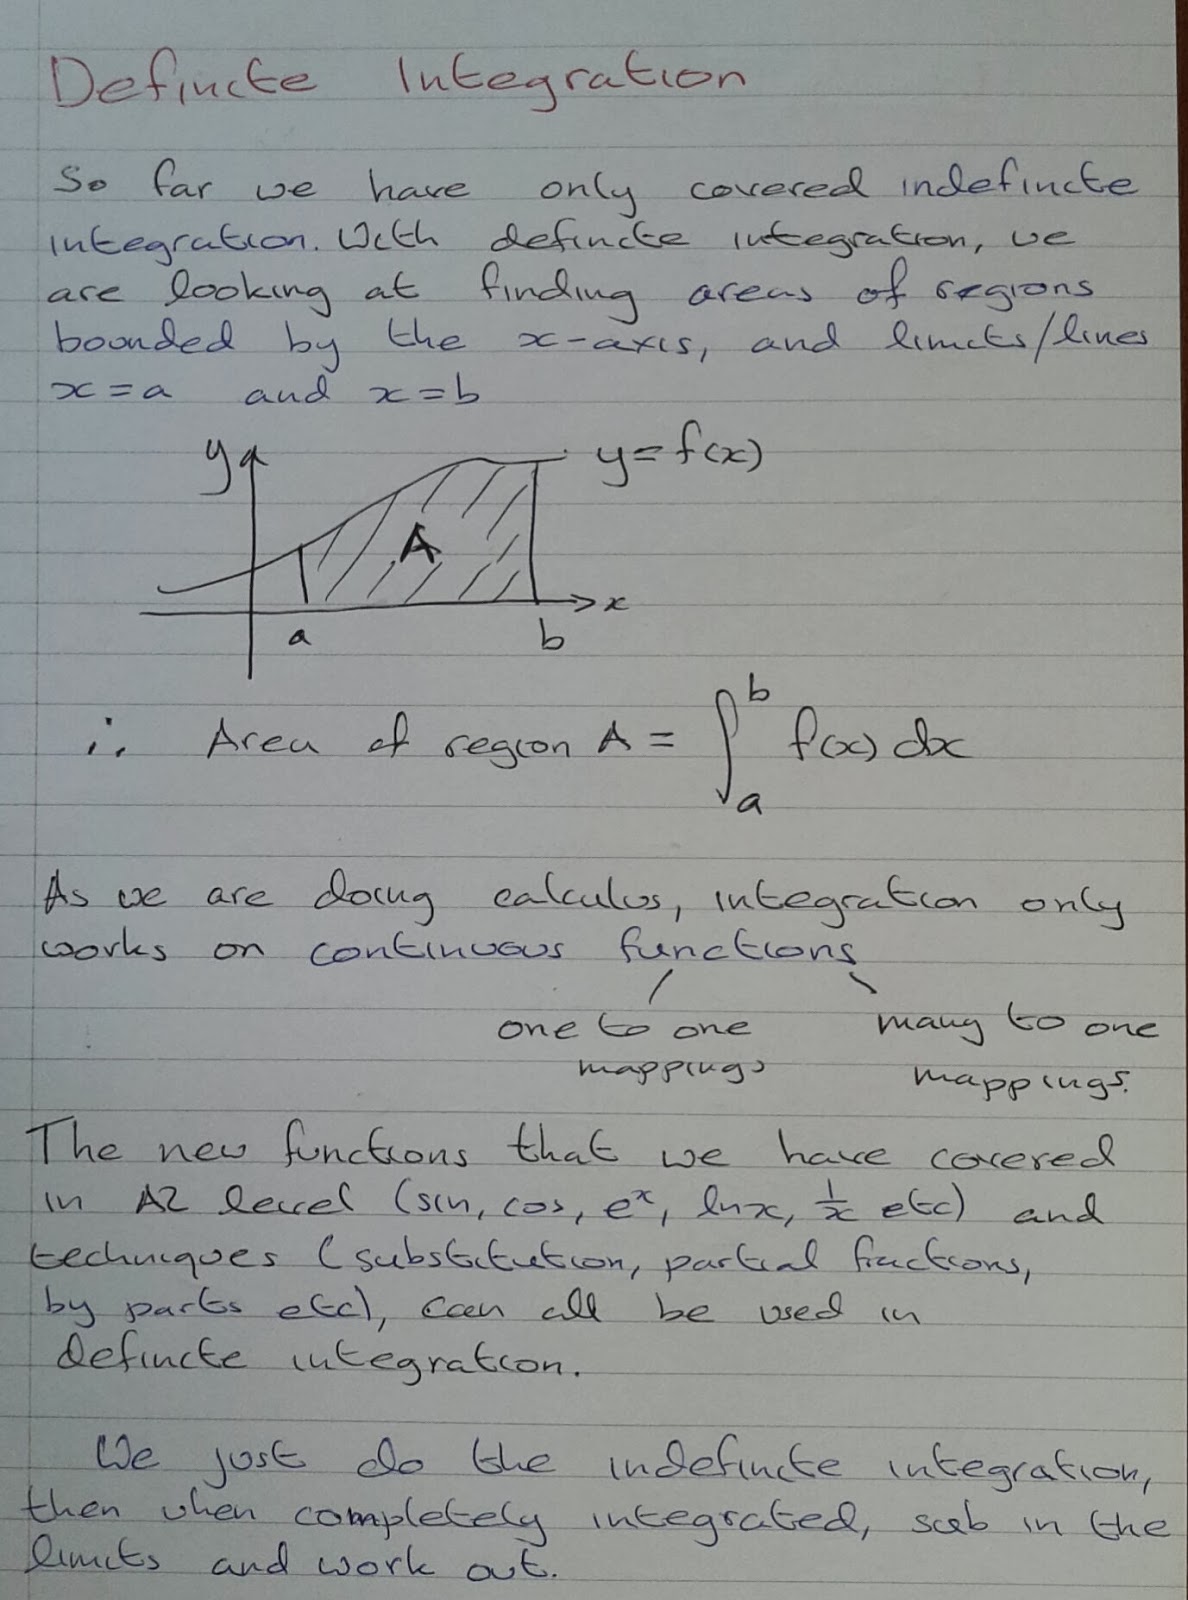 Definite Integration
So far we have only covered indefinite
integration. With definite integration, we
are looking at finding areas of regions
bounded by the x-axis, and limits/lines
x=a and x=b
y
y=f(x)
A
x
a
b
∴ Area of region A = ∫_a^b f(x) dx
As we are doing calculus, integration only
works on continuous functions
one to one
mappings
many to one
mappings.
The new functions that we have covered
in A2 level (sin, cos, e^x, lnx, 1/x etc) and
techniques (substitution, partial fractions,
by parts etc), can all be used in
definite integration.
We just do the indefinite integration,
then when completely integrated, sub in the
limits and work out.